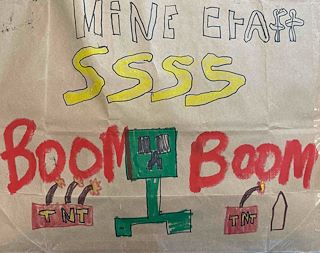 MINE CRAft
SSSS
BOOM BOOM
TNT TNT